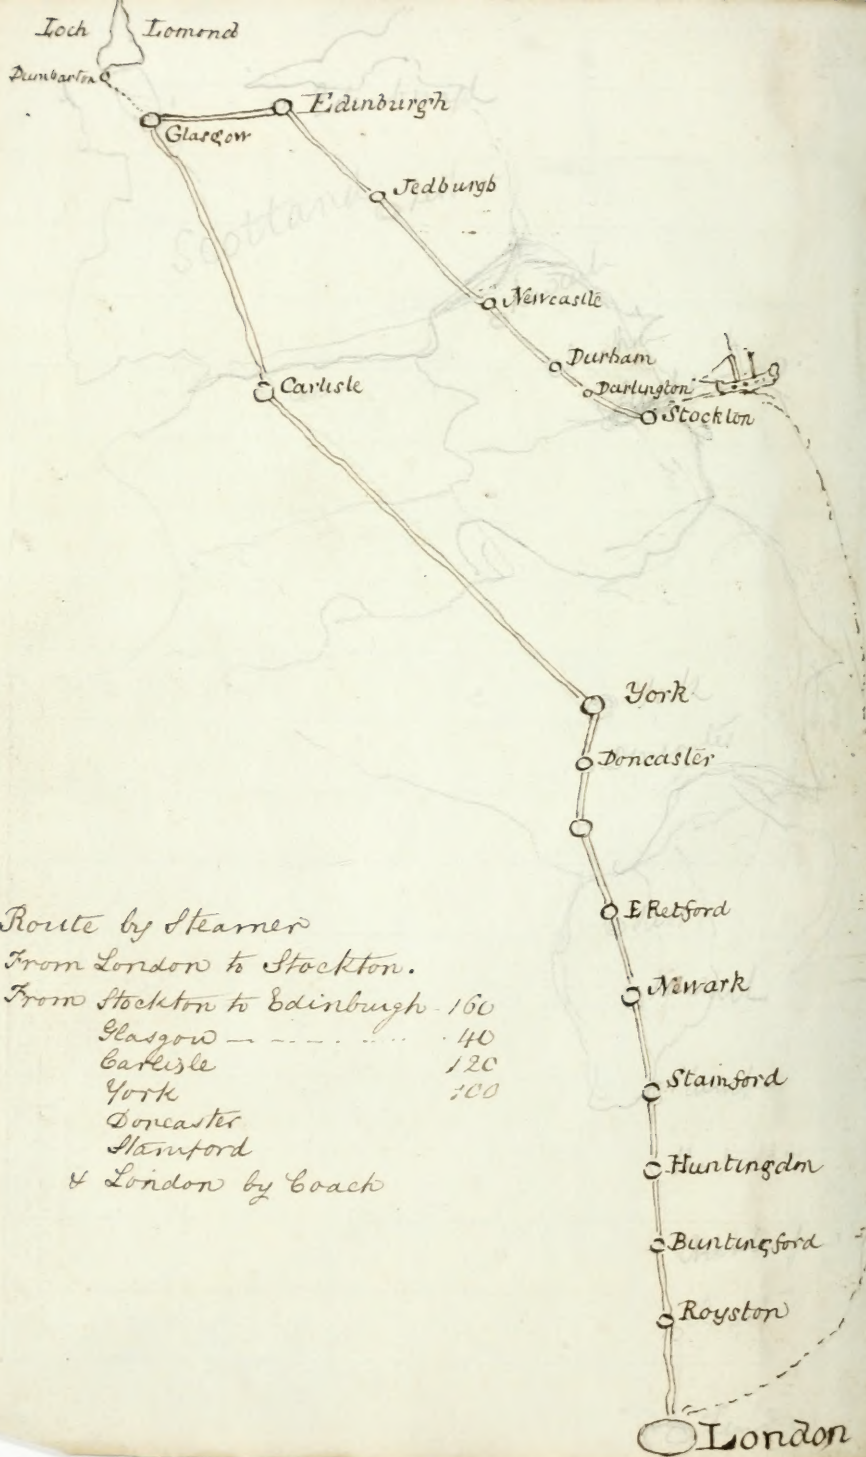 Loch Lomond
Dumbarton
Glasgow
Edinburgh
Jedburgh
Scotland
Newcastle
Durham
Darlington
Stockton
Carlisle
York
Doncaster
E Retford
Newark
Stamford
Huntingdon
Buntingford
Royston
London
Route by Steamer
From London to Stockton.
From Stockton to Edinburgh - 160
Glasgow - - - - - 40
Carlisle 120
York 100
Doncaster
Stamford
& London by Coach